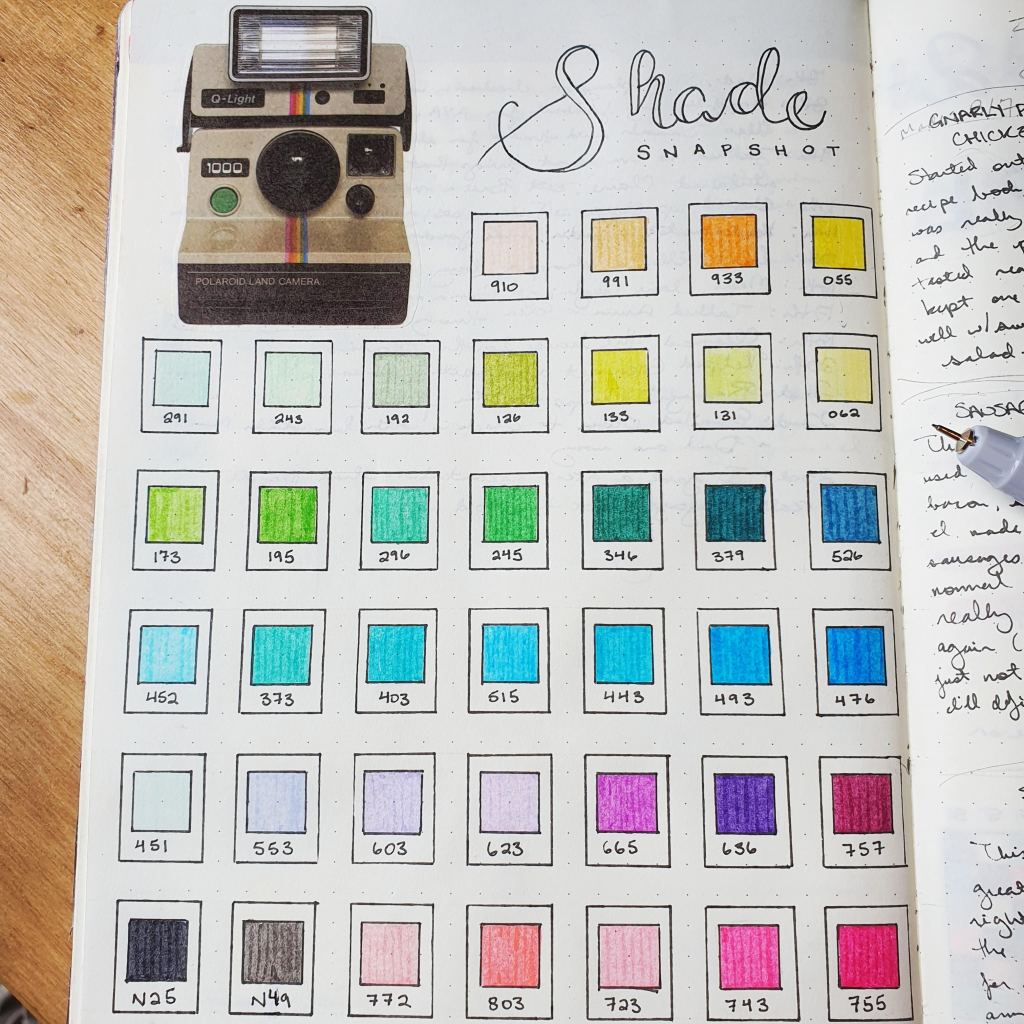 Q-Light
1000
POLAROID LAND CAMERA
Shade
SNAPSHOT
910 991 933 055
291 243 192 126 133 131 062
173 195 296 245 346 379 526
452 373 403 515 443 493 476
451 553 603 623 665 636 757
N25 N49 772 803 723 743 755
GNARLY
CHICKE
Started out
recipe book
was really
and the
tested
kept one
well w/
salad.
SAUSAG
used
bacon,
made
sausages
normal
really
again (
just not
I'll
This
great
right
the
for